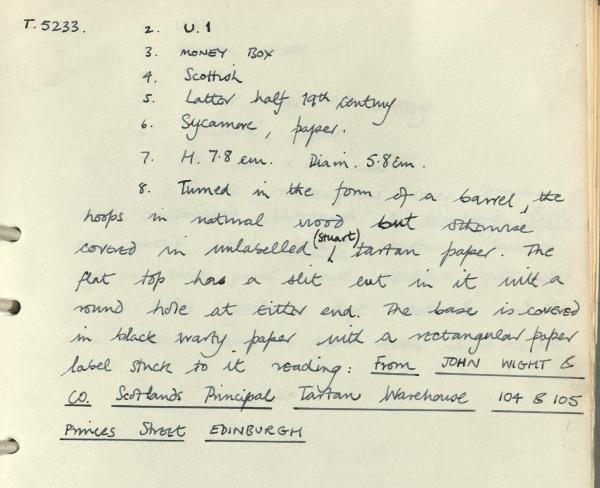 T.5233. 2. U.1
3. MONEY BOX
4. Scottish
5. Latter half 19th century
6. Sycamore, paper.
7. H. 7.8 cm. Diam. 5.8 cm.
8. Turned in the form of a barrel, the
hoops in natural wood but otherwise
covered in unlabelled (Stuart) tartan paper. The
flat top has a slit cut in it with a
round hole at either end. The base is covered
in black warty paper with a rectangular paper
label stuck to it reading: From JOHN WIGHT &
CO. Scotlands Principal Tartan Warehouse 104 & 105
Princes Street EDINBURGH